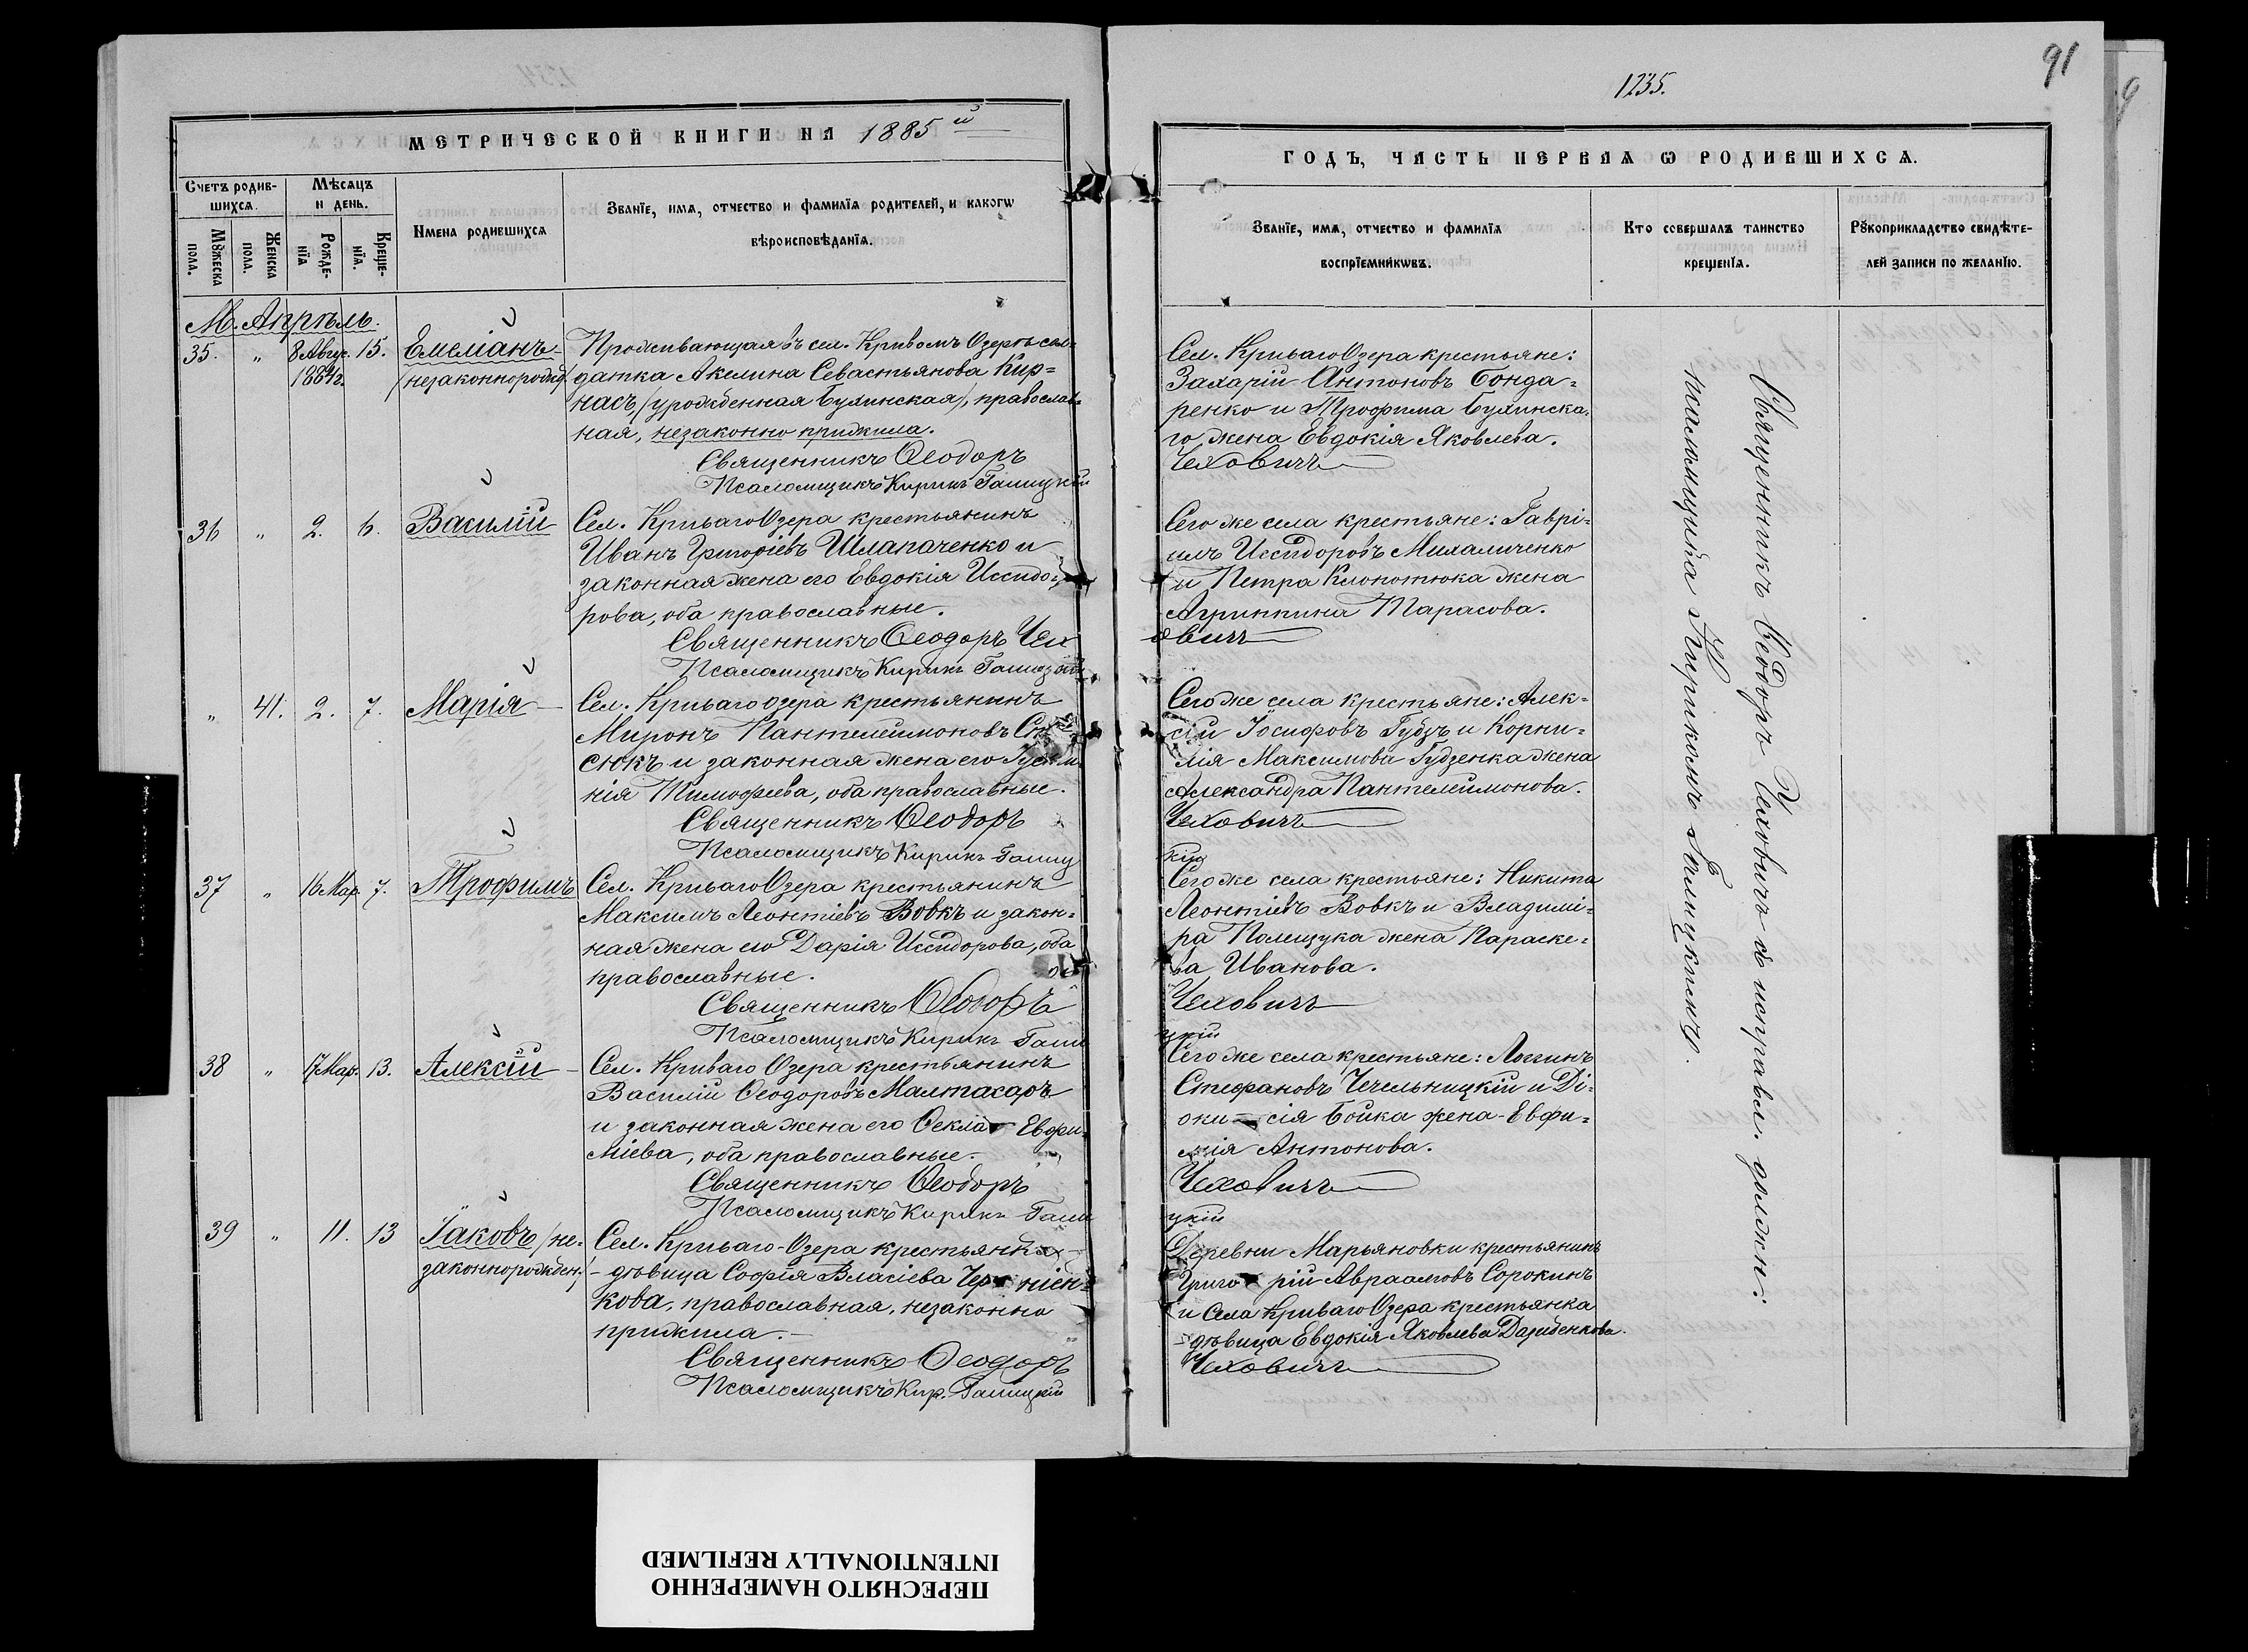 91
1235.
МЕТРИЧЕСКОЙ КНИГИ НА 1885 й
Счетъ родив-
шихсѧ.
Мѣсѧцъ
и день.
Мꙋжеска
пола.
Женска
пола.
Рожде-
нїѧ
Креще-
нїѧ.
Имена родившихсѧ
Званїе, имѧ, отчество и фамилїѧ родителей, и какогѡ
вѣроисповѣданїѧ.
М. Апрѣль.
35. " 8 Авгус. 15. Емеліанъ
1884г. (незаконнорожд.
Проживающая въ сел. Кривомъ Озерѣ сол-
датка Акелина Севастьянова Кир=
насъ, (урожденная Булинская), православ=
ная, незаконно прижила.
Священникъ Ѳеодоръ
Псаломщикъ Кирикъ Галицкій
36 " 2. 6. Василій
Сел. Криваго Озера крестьянинъ
Иванъ Григоріевъ Шлапаченко и
законная жена его Евдокія Исидо=
рова, оба православные.
Священникъ Ѳеодоръ Чех
Псаломщикъ Кирикъ Галицкій
" 41. 2. 7. Марія
Сел. Криваго озера крестьянинъ
Миронъ Пантелеимоновъ
сюкъ и законная жена его
нія Тимофеева, оба православные.
Священникъ Ѳеодоръ
Псаломщикъ Кирикъ Галиц
37 " 16 Мар. 7. Трофимъ
Сел. Криваго Озера крестьянинъ
Максимъ Леонтіевъ Вовкъ и закон=
ная жена его Дарія Исидорова, оба
православные.
Священникъ Ѳеодоръ
Псаломщикъ Кирикъ Гали
38 " 17 Мар. 13. Алексій
Сел. Криваго Озера крестьянинъ
Василій Ѳеодоровъ Малтахаръ
и законная жена его Ѳекла Евфи=
міева, оба православные.
Священникъ Ѳеодоръ
Псаломщикъ Кирикъ Гали
39 " 11. 13 Іаковъ (не=
законнорожден.)
Сел. Криваго-Озера крестьянка
- дѣвица Софія Власіева
кова, православная, незаконно
прижила.
Священникъ Ѳеодоръ
Псаломщикъ Кир. Галицкій
ГОДЪ, ЧАСТЬ ПЕРВАѦ Ѡ РОДИВШИХСѦ.
Званїе, имѧ, отчество и фамилїѧ
воспрїемникѡвъ.
Кто совершалъ таинство
крещенїѧ.
Рꙋкоприкладство свидѣте-
лей записи по желанїю.
Сел. Криваго Озера крестьяне:
Захарій Антоновъ Бонда=
ренко и Трофима Булинска=
го жена Евдокія Яковлева.
Чеховичъ
Сего же села крестьяне: Гаврі=
илъ Исидоровъ Михаличенко
и Петра Клопотюка жена
Агриппина Тарасова.
овичъ
Сего же села крестьяне: Алек=
сій Іосифовъ Губъ и Корни=
лія Максимова Гудзенка жена
Александра Пантелеимонова.
Чеховичъ
кій
Сего же села крестьяне: Никита
Леонтіевъ Вовкъ и Владимі=
ра Полищука жена Параске=
ва Иванова.
Чеховичъ
цкій
Сего же села крестьяне: Логгинъ
Стефановъ Чечельницкій и Ді=
они сія Бойка жена Евфи=
мія Антонова.
Чеховичъ
цкій
Деревни Марьяновки крестьянинъ
Григо рій Авраамовъ Сорокинъ
и Села Криваго Озера крестьянка
- дѣвица Евдокія Яковлева
Чеховичъ
Священникъ Ѳеодоръ Чеховичъ съ исправл. должн:
псаломщика Кирикомъ Галицкимъ.
ПЕРЕСНЯТО НАМЕРЕННО
INTENTIONALLY REFILMED